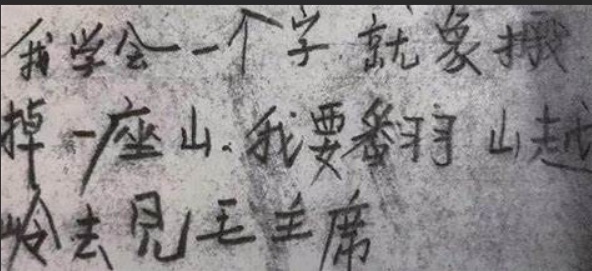 我学会一一个字就象搬
掉一座山.我要翻山越
岭去见毛主席